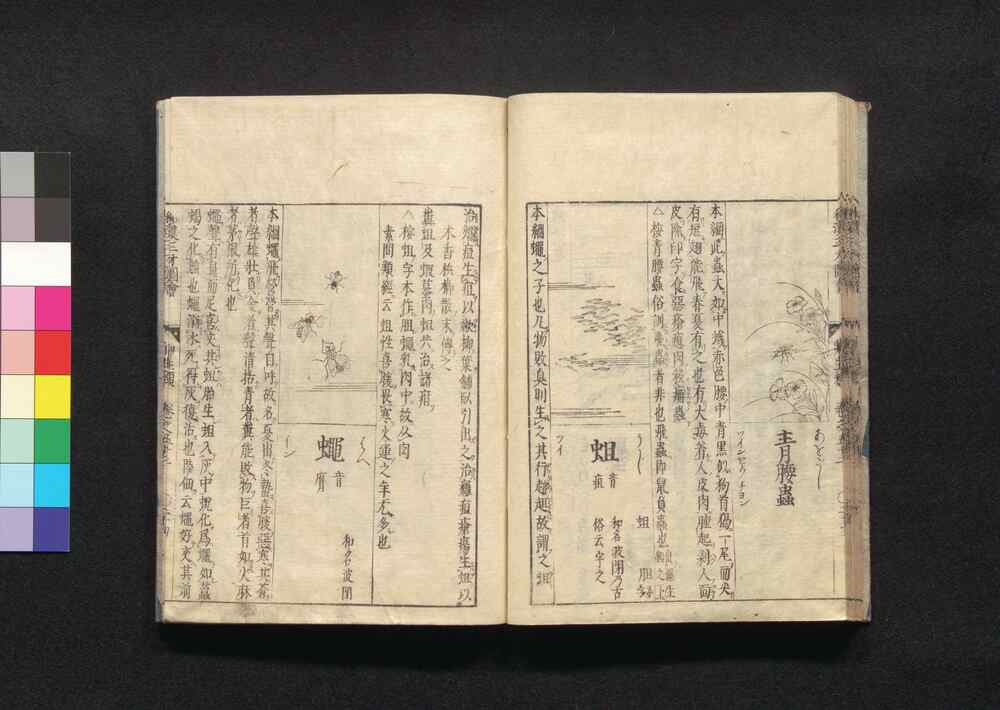 青腰蟲
あをこし
本綱此蟲大如中蟻赤色腰中青黒似狗首猲一尾而尖
有短翅能飛春夏有之也有大毒着人皮肉腫起剥人面
皮除印字食惡瘡瘜肉殺癬蟲
△按青腰蟲俗訓
蛆
音疽
うじ
ツイ
蛆
胆
和名波閉乃古
俗云宇之
本綱蠅之子也凡物敗臭則生之其行趑趄故謂之蛆
治
生蛆以嫩柳葉鋪臥引出之治
瘡瘍生蛆以
木香檳榔散末傅之
蛆及蝦蟇肉蛆共治諸疳
△按蛆字本作胆蠅乳肉中故从肉
素問類經云蛆性喜暖畏寒火運之年尤多也
蠅
音膺
はへ
イン
和名波閉
本綱蠅飛營營其聲自呼故名夏出冬蟄喜暖惡寒其蒼
者聲雄壯負金者聲清括青者糞能敗物巨者首如火麻
者茅根所化也
蠅有
前足
其蛆胎生蛆入灰中蛻化爲蠅如蠶
蝎之化蛾也蠅溺水死得灰復活也陸佃云蠅好交其前
和漢三才圖會